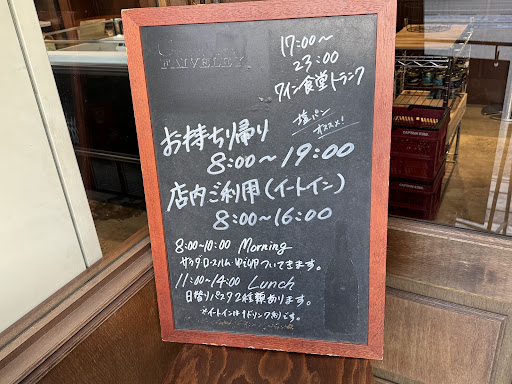 FAIVELEY
17:00〜
23:00
ワイン食堂トランク
塩パン
オススメ!
お持ち帰り
8:00〜19:00
店内ご利用(イートイン)
8:00〜16:00
8:00〜10:00 Morning
サラダ・ロースハム・ゆで卵ついてきます。
11:00〜14:00 Lunch
日替りパスタ2種類あります。
※イートインは1ドリンク制です。